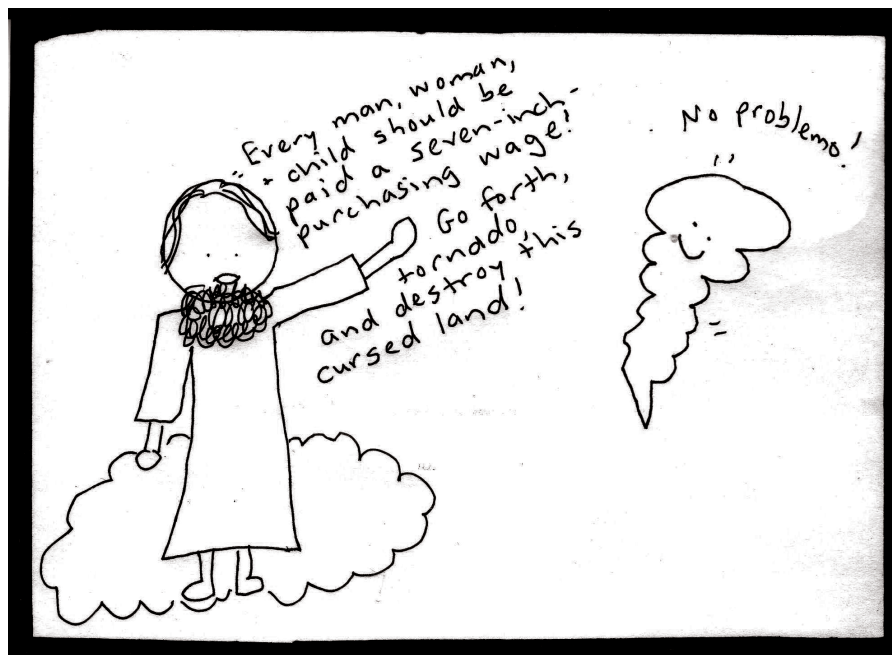 "Every man, woman,
+ child should be
paid a seven-inch-
purchasing wage!
Go forth,
tornado,
and destroy this
cursed land!
No problemo!